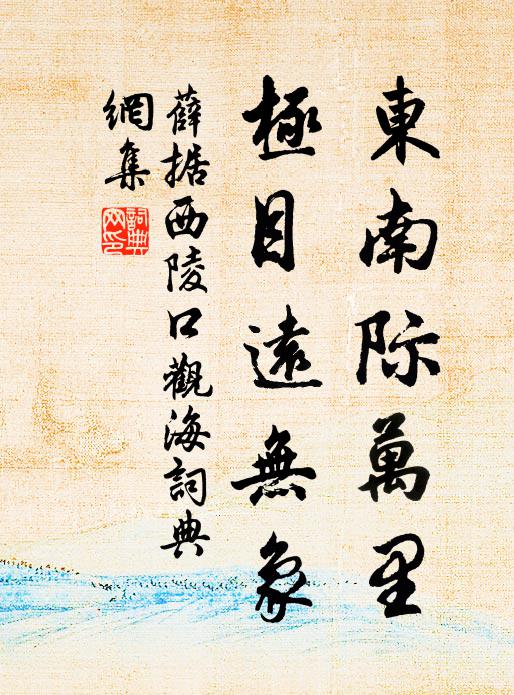 東南际萬里
極目遠無象
薛据西陵口觀海詞典
網集
詞典
网印